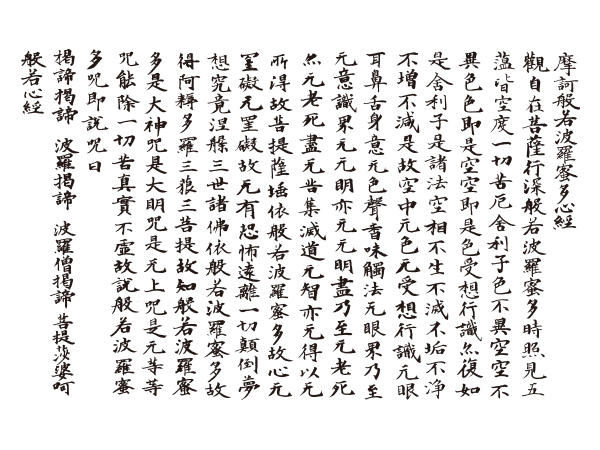 摩訶般若波羅蜜多心經
觀自在菩薩行深般若波羅蜜多時照見五
薀皆空度一切苦厄舍利子色不異空空不
異色色即是空空即是色受想行識亦復如
是舍利子是諸法空相不生不滅不垢不浄
不增不減是故空中无色无受想行識无眼
耳鼻舌身意无色聲香味觸法无眼界乃至
无意識界无无明亦无无明盡乃至无老死
亦无老死盡无苦集滅道无智亦无得以无
所得故菩提薩埵依般若波羅蜜多故心无
罣礙无罣礙故无有恐怖遠離一切顛倒夢
想究竟涅槃三世諸佛依般若波羅蜜多故
得阿耨多羅三藐三菩提故知般若波羅蜜
多是大神呪是大明呪是无上呪是无等等
呪能除一切苦真實不虛故說般若波羅蜜
多呪即說呪曰
揭諦揭諦 波羅揭諦 波羅僧揭諦 菩提莎婆呵
般若心經